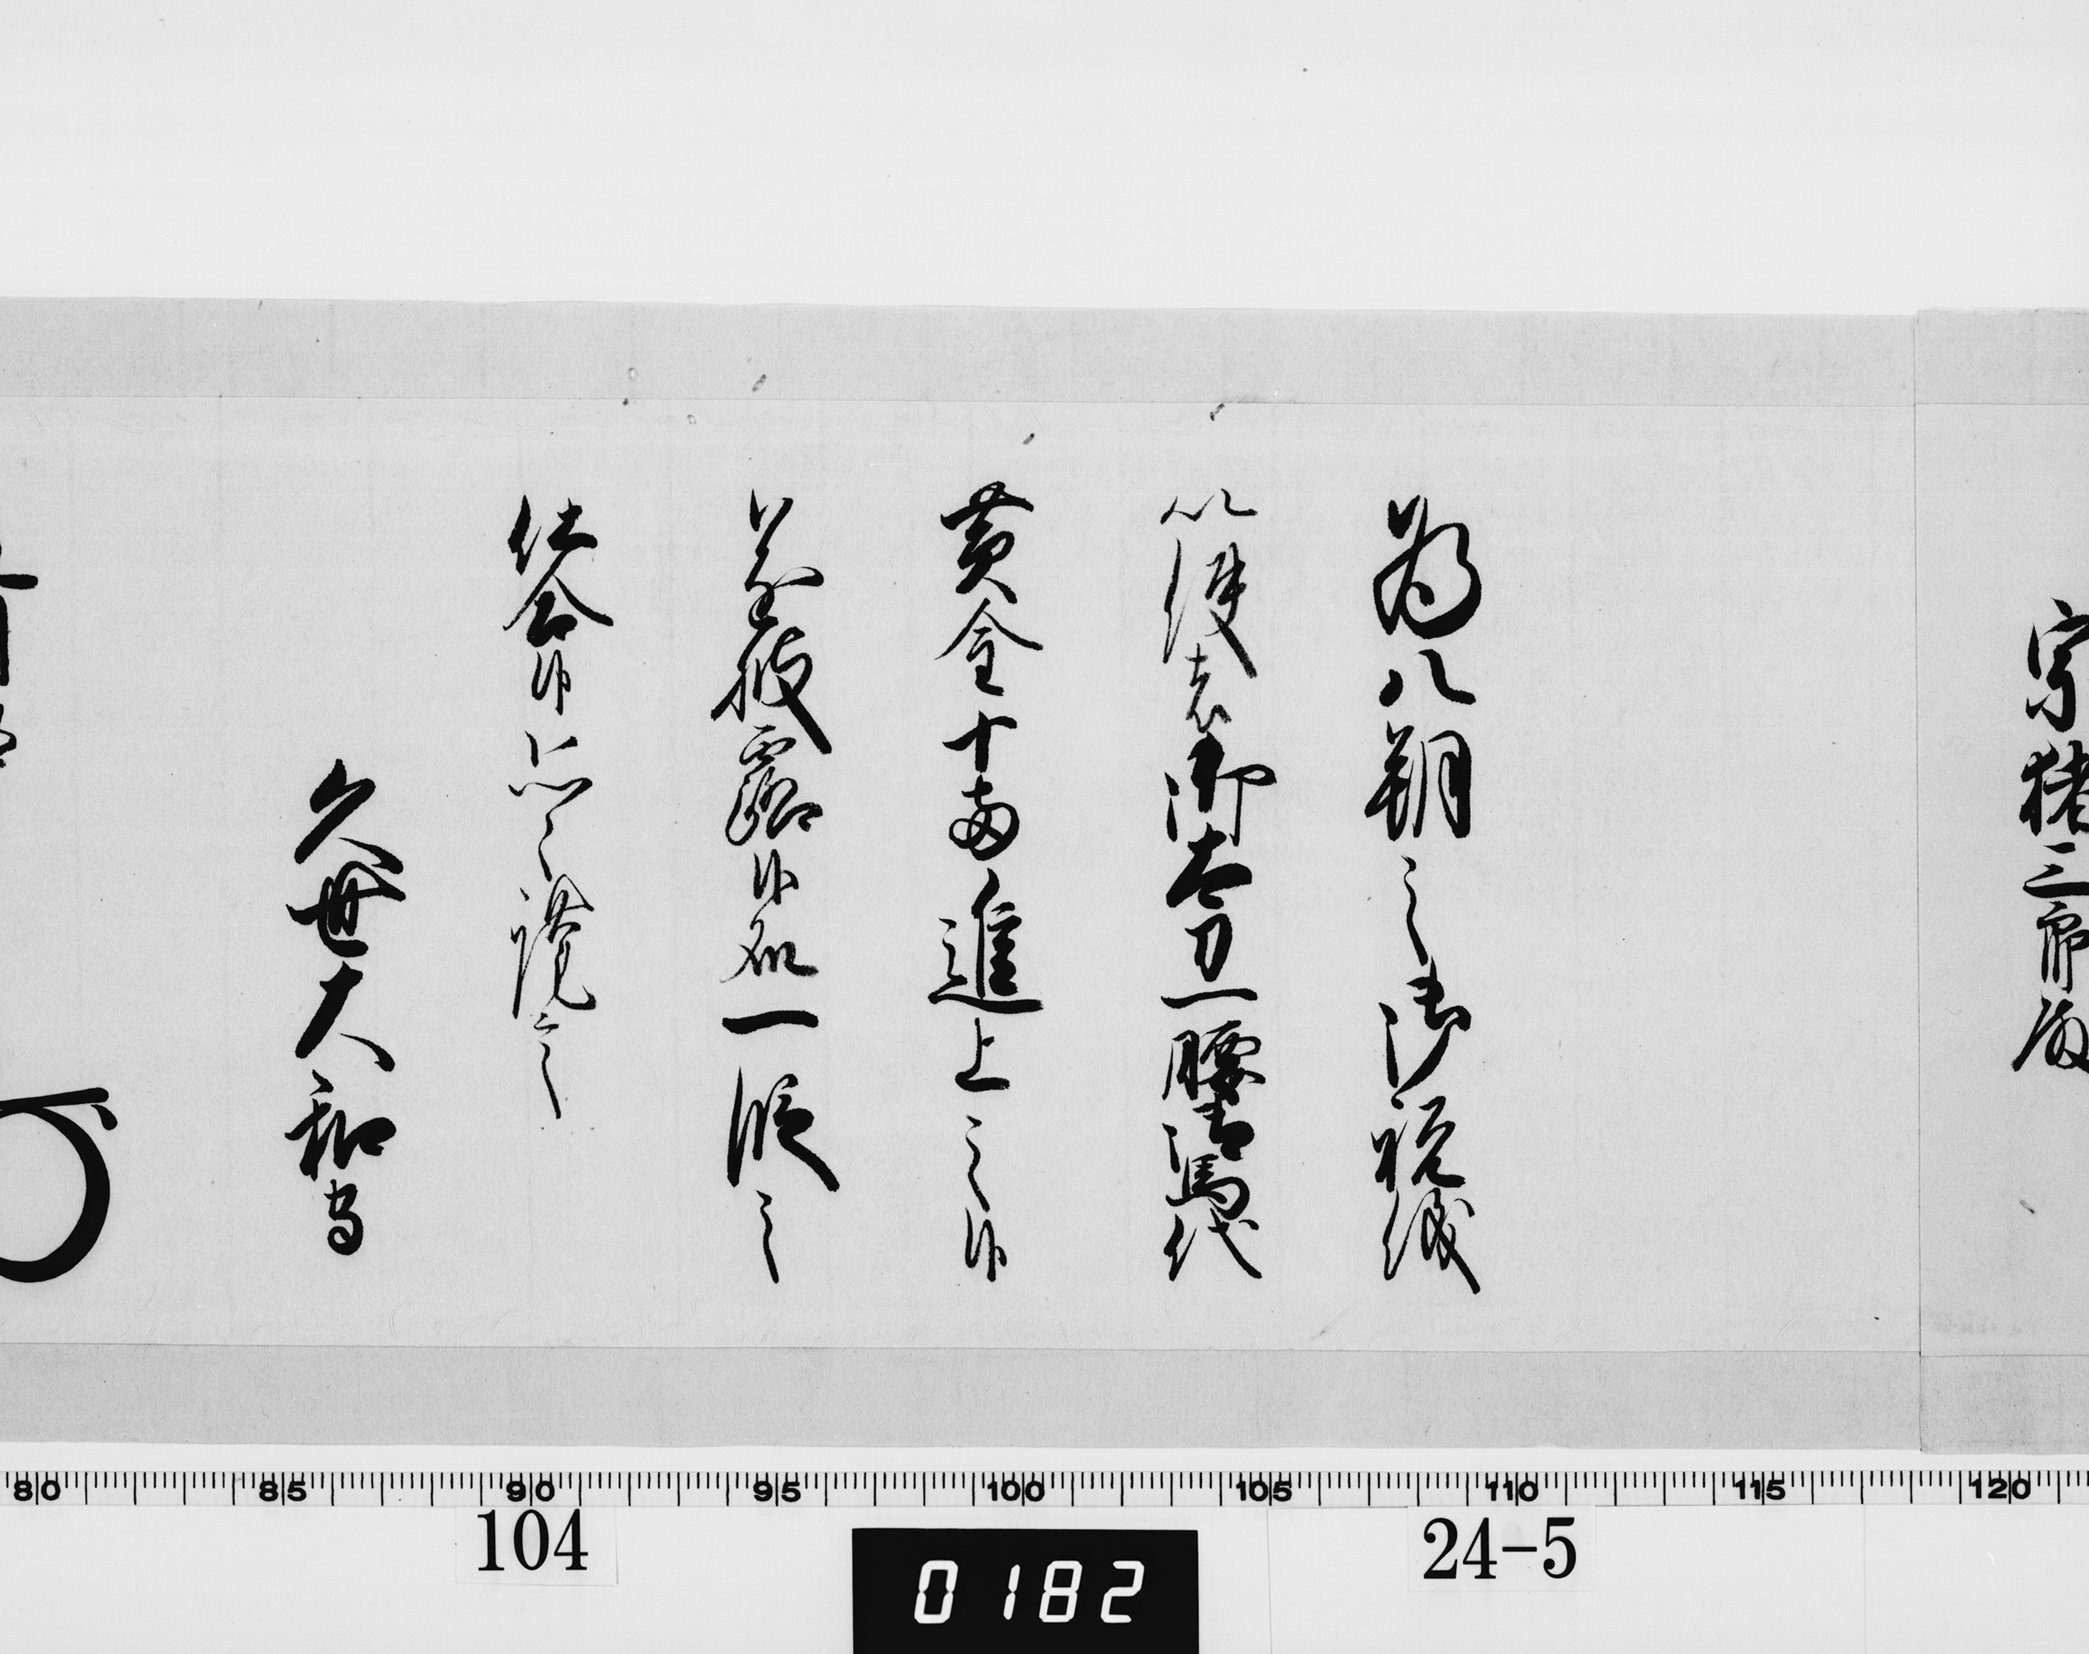 宗猪三郎殿
為八朔之御祝儀
以使者御太刀一腰御馬代
黄金十両進上之候
並披露候処一段之
仕合候恐々謹言
久世大和守
80 85 90 95 100 105 110 115 120
104 24-5
0182